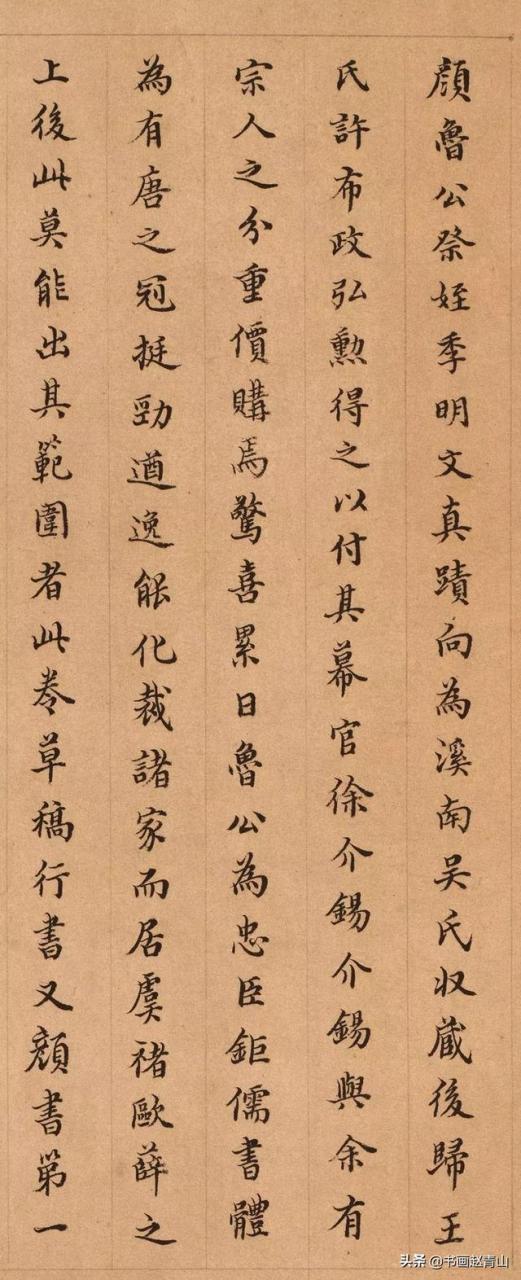 顔魯公祭姪季明文真蹟向為溪南吴氏収蔵後歸王
氏許布政弘勲得之以付其幕官徐介錫介錫與余有
宗人之分重價購焉驚喜累日魯公為忠臣鉅儒書體
為有唐之冠挺勁遒逸能化裁諸家而居虞褚歐薛之
上後此莫能出其範圍者此卷草稿行書又顔書第一
头条 @书画赵青山